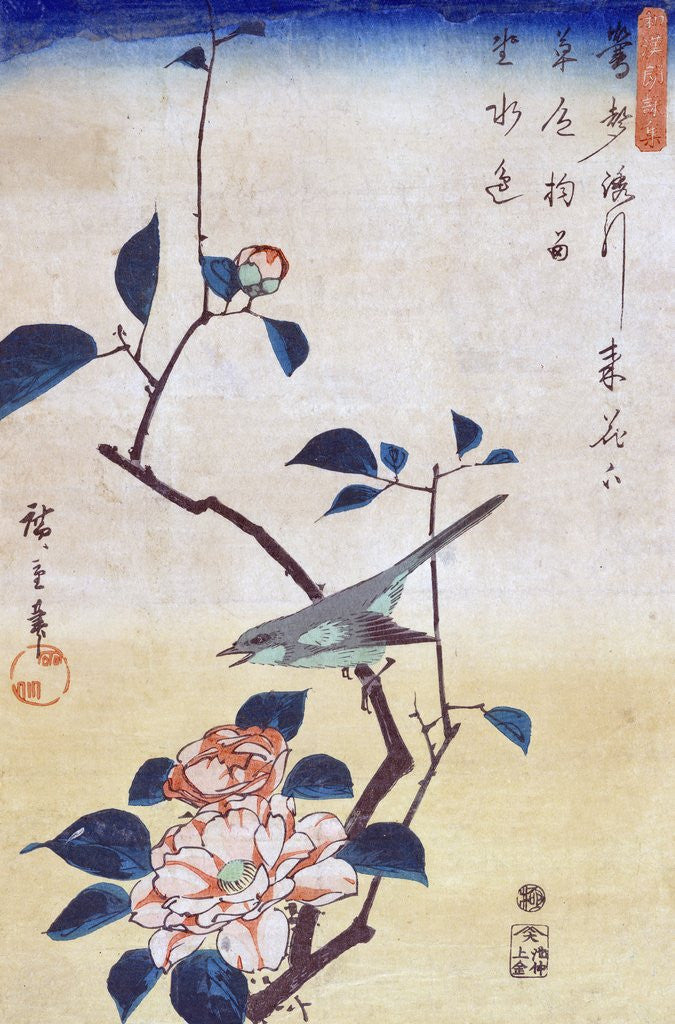 和漢朗詠集
鶯聲誘引来花下
草色拘留
坐水邊
廣重筆
極
池仲
上金